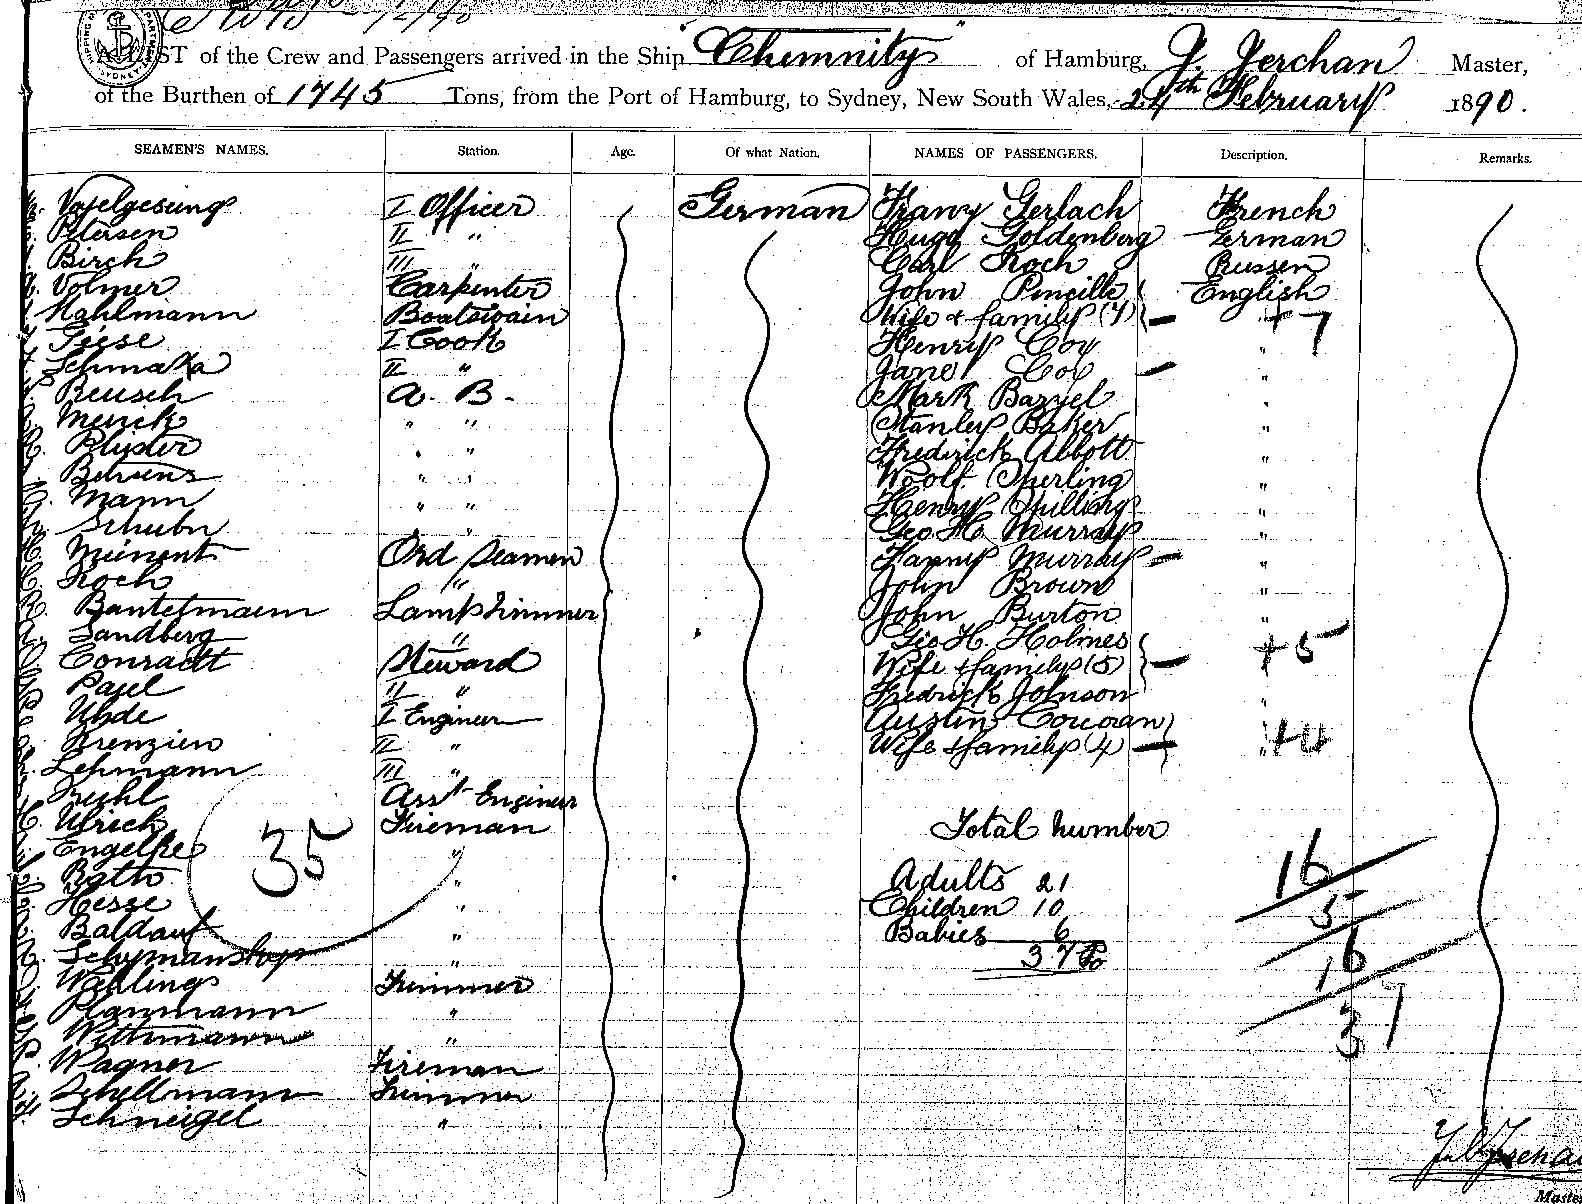 LIST of the Crew and Passengers arrived in the Ship "Chemnitz" of Hamburg, Jerchan Master,
of the Burthen of 1745 Tons, from the Port of Hamburg, to Sydney, New South Wales, 24th February 1890.
SEAMEN'S NAMES. Station. Age. Of what Nation. NAMES OF PASSENGERS. Description. Remarks.
Vogelgesang I Officer German Franz Gerlach French
Petersen II " Hugo Goldenberg German
Birch III " Carl Koch Russen
Volmer Carpenter John Pincille English
Kahlmann Boatswain Wife & family (7) — +7
Giese I Cook Henry Coy "
II " Jane Coy — "
Reusch A. B. Mark Barzel "
Merick " " Stanley Baker "
" " Fredirick Abbott "
Behrens " " Woolf Sperling "
Mann " " Henry Spilling "
Schubr " Geo H. Murray "
Meinent Ord Seamen Fanny Murray — "
Koch " John Brown "
Bantelmann Lamptrimmer John Burton "
Sandberg " Geo H. Holmes
Conradt Steward Wife & family (5) — +5
Pagel II " Fredrick Johnson "
Uhde I Engineer Austin Corcoran
Brenzien II " Wife & family (4) — " +4
Lehmann III "
Asst Engineer
Ulrich Fireman Total number
Engelke "
35
Rath " Adults 21 16
Hesse " Children 10 5
Baldauf " Babies 6 16
" 37
Wehling Trimmer 37
Plannmann "
Wittmann "
Wagner Fireman
Schellmann Trimmer
Schneigel "
Master